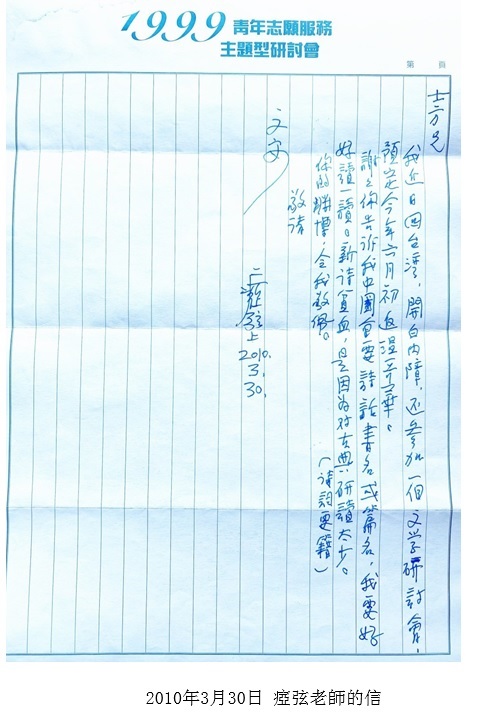 1999 青年志願服務
主題型研討會
第 頁
士方兄
我近日回台湾，開白内障，还參加一個文学研討會，
預定今年六月初返温哥華。
謝々你告訴我中國重要詩話書名或篇名，我要好
好讀一讀。新诗貧血，是因为对古典研讀太少。
（诗詞要籍）
你的淵博，令我敬佩。
敬请
文安
瘂弦上 2010.
3.
30.
2010年3月30日 瘂弦老師的信